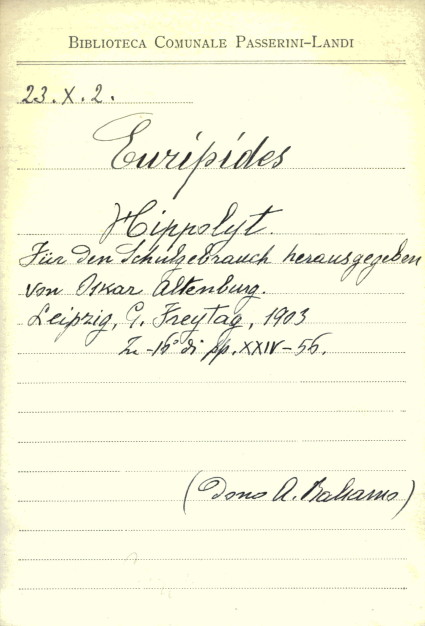 BIBLIOTECA COMUNALE PASSERINI-LANDI
23. X. 2.
Euripides
Hippolyt.
Für den Schulgebrauch herausgegeben
von Oskar Altenburg.
Leipzig, G. Freytag, 1903
In-16° di pp. XXIV-56.
(Dono A. Balsamo)